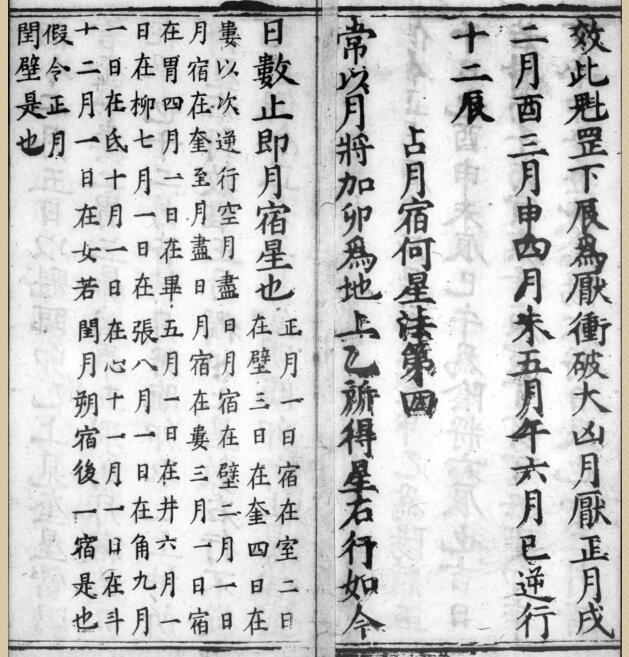 效此魁罡下辰爲厭衝破大凶月厭正月戌
二月酉三月申四月未五月午六月巳逆行
十二辰
占月宿何星法第四
常以月將加卯爲地上乙所得星右行如今
日數止即月宿星也
正月一日宿在室二日
在壁三日在奎四日在
婁以次逆行空月盡日月宿在壁二月一日
月宿在奎至月盡日月宿在婁三月一日宿
在胃四月一日在畢五月一日在井六月一
日在柳七月一日在張八月一日在角九月
一日在氐十月一日在心十一月一日在斗
十二月一日在女若閏月朔宿後一宿是也
假令正月
閏壁是也